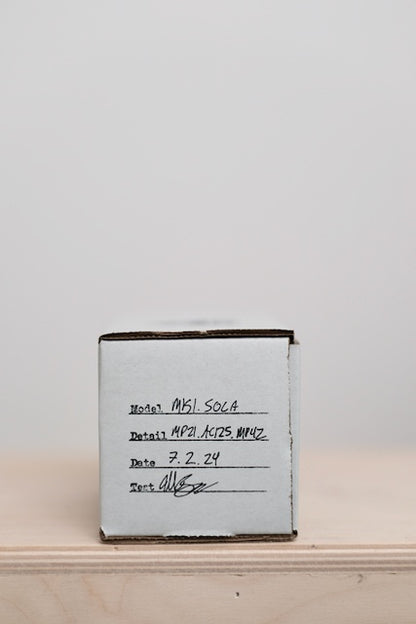 Model MK1. SOCA
Detail MP21. AC125. MP42
Date 7. 2. 24
Test